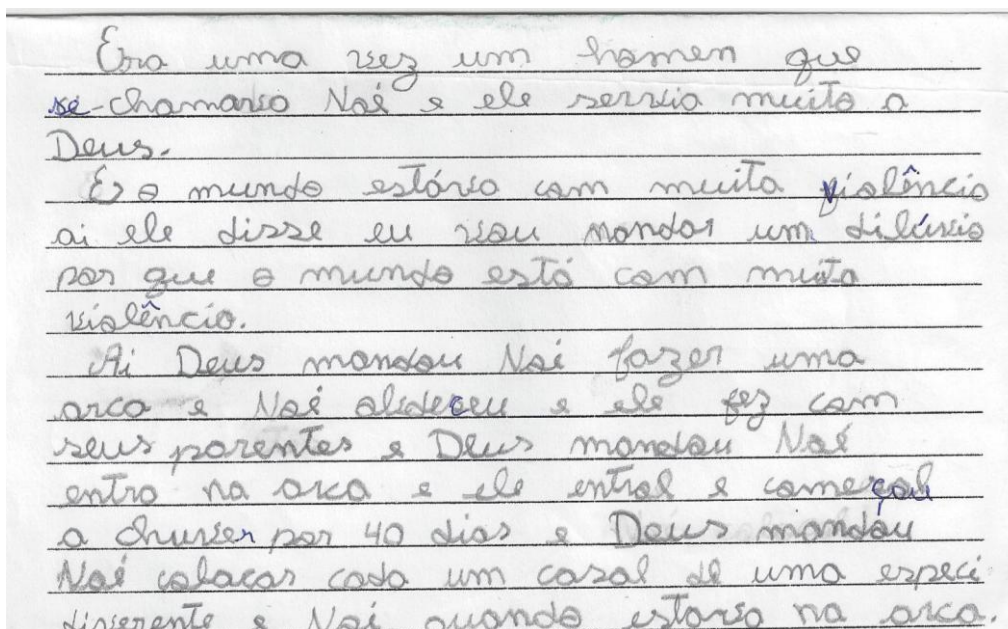 Era uma vez um homen que
se-chamava Noé e ele servia muito a
Deus.
E o mundo estáva com muita violência
ai ele disse eu vou mandar um dilúvio
por que o mundo está com muita
violência.
Ai Deus mandou Noé fazer uma
arca e Noé obdeceu e ele fez com
seus parentes e Deus mandou Noé
entra na arca e ele entrol e começou
a chuver por 40 dias e Deus mandou
Noé colocar cada um casal de uma especi
diverente e Noé quando estava na arca.